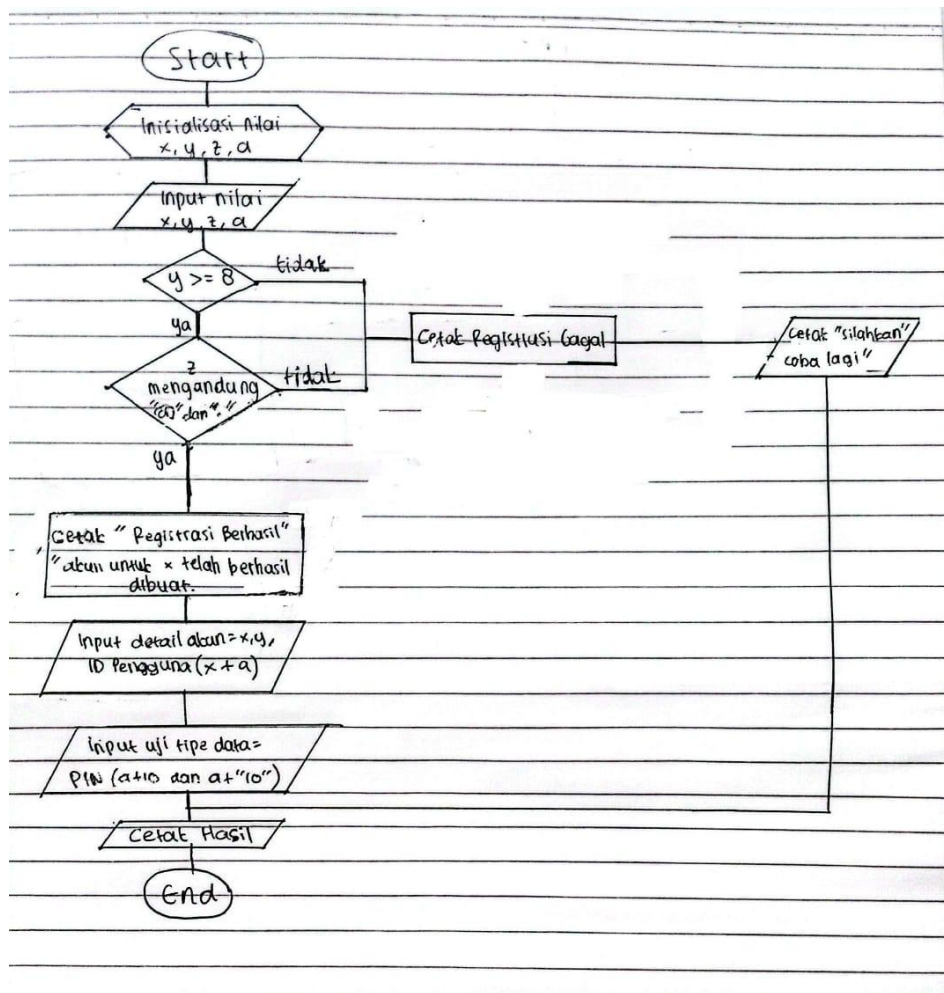 Start
Inisialisasi nilai
x, y, z, a
Input nilai
x, y, z, a
y >= 8
tidak
ya
z
mengandung
"@" dan "."
tidak
ya
Cetak Registrusi Gagal
Cetak "silahkan"
coba lagi"
Cetak " Registrasi Berhasil"
"akun untuk x telah berhasil
dibuat.
Input detail akun = x, y,
ID Pengguna (x + a)
input uji tipe data =
PIN (a+10 dan a+"10")
Cetak Hasil
End